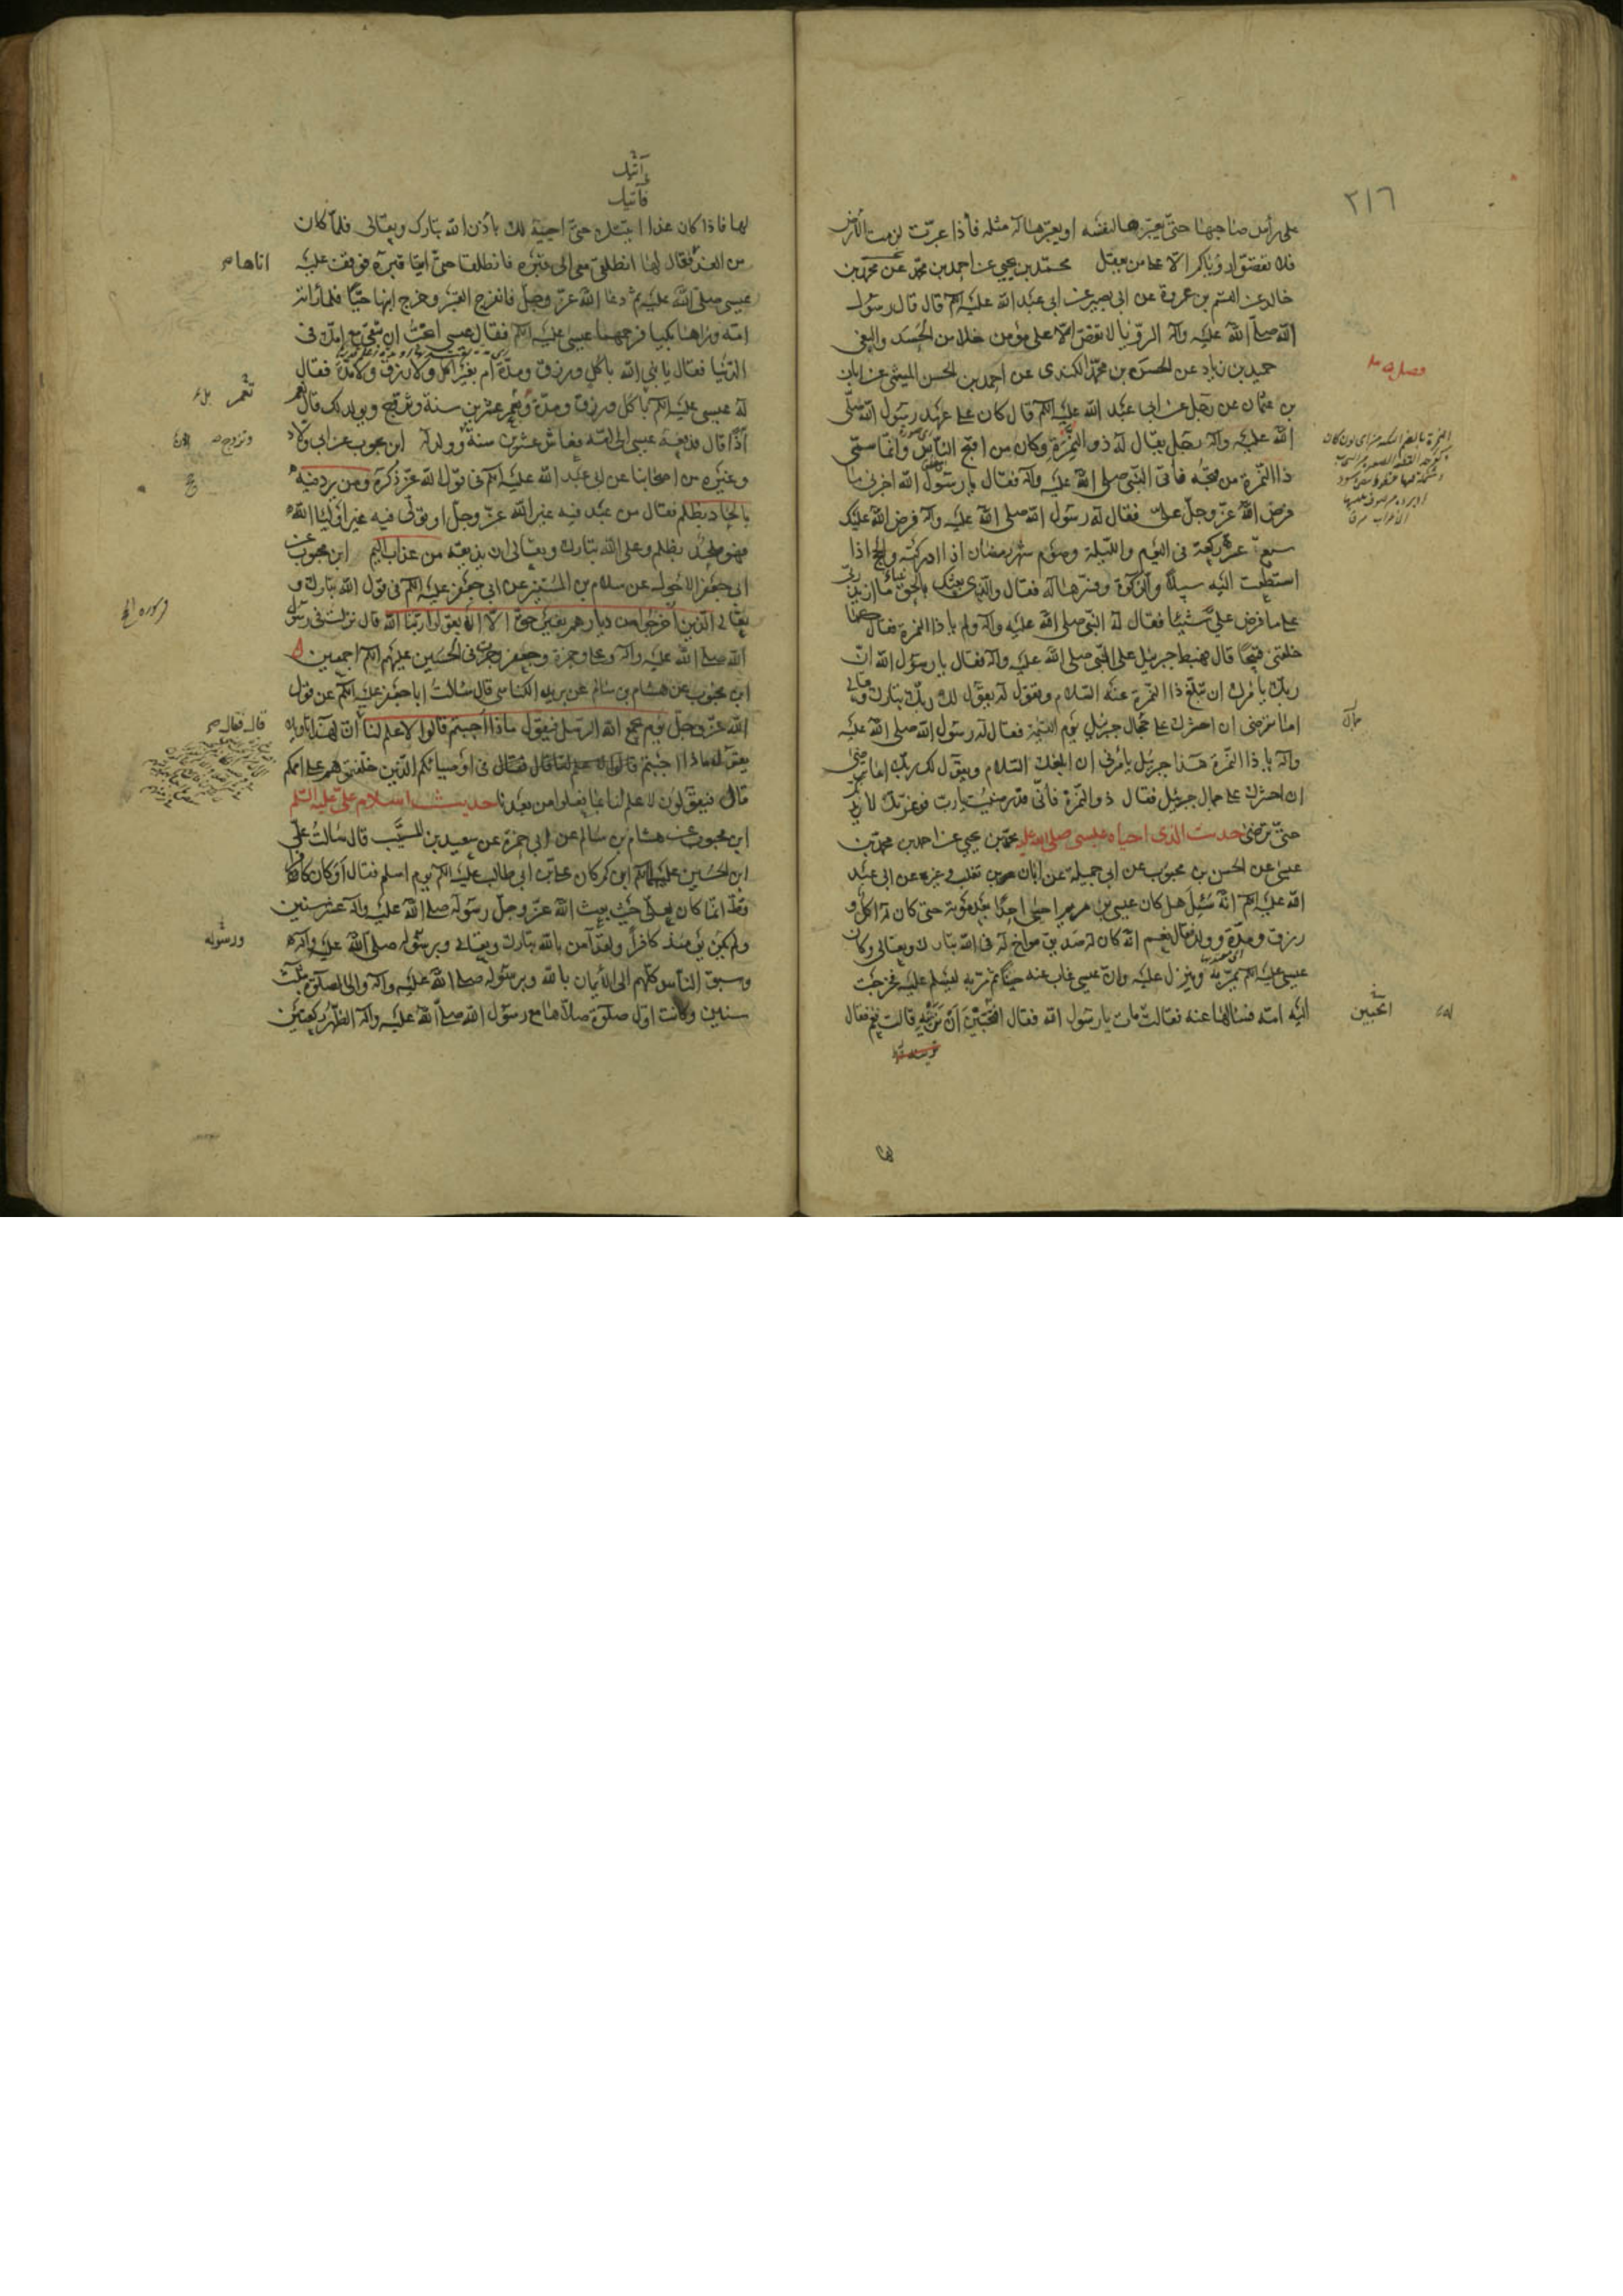 ٣١٦
على رأس صاحبها حتى يعبرها لنفسه او يعبرها له مثله فاذا عبرت لزمت الارض
فلا تقصوا رؤياكم الا على من يعقل محمد بن يحيى عن احمد بن محمد عن محمد بن
خالد عن القسم بن عروة عن ابى بصير عن ابى عبد الله عليه السلم قال قال رسول
الله صلى الله عليه وآله الرؤيا لا تقص الا على مؤمن خلا من الحسد والبغى
حميد بن زياد عن الحسن بن محمد الكندى عن احمد بن الحسن الميثمى عن ابان
بن عثمان عن رجل عن ابى عبد الله عليه السلم قال كان على عهد رسول الله صلى
الله عليه وآله رجل يقال له ذو النمرة وكان من اقبح الناس وانما سمى
ذا النمرة من قبحه فاتى النبى صلى الله عليه وآله فقال يا رسول الله اخبرنى ما
فرض الله عز وجل على فقال له رسول الله صلى الله عليه وآله فرض الله عليك
سبع عشرة ركعة فى اليوم والليلة وصوم شهر رمضان اذا ادركته والحج اذا
استطعت اليه سبيلا والزكوة وفسرها له فقال والذى بعثك بالحق نبيا ما ازيد ربى
على ما فرض على شيئا فقال له النبى صلى الله عليه وآله ولم يا ذا النمرة فقال كما
خلقنى قبيحا قال فهبط جبرئيل على النبى صلى الله عليه وآله فقال يا رسول الله ان
ربك يأمرك ان تبلغ ذا النمرة عنه السلام وتقول له يقول لك ربك تبارك وتعالى
اما ترضى ان احشرك على جمال جبرئيل يوم القيمة فقال له رسول الله صلى الله عليه
وآله يا ذا النمرة هذا جبرئيل يأمرنى ان ابلغك السلام ويقول لك ربك اما ترضى
ان احشرك على جمال جبرئيل فقال ذو النمرة فانى قد رضيت يا رب فوعزتك لازيدنك
حتى ترضى حديث الذى احياه عيسى صلى الله عليه محمد بن يحيى عن احمد بن محمد بن
عيسى عن الحسن بن محبوب عن ابى جميلة عن ابان بن تغلب وغيره عن ابى عبد
الله عليه السلم انه سئل هل كان عيسى بن مريم احيى احدا بعد موته حتى كان له اكل و
رزق ومدة وولد فقال نعم انه كان له صديق مواخ له فى الله تبارك وتعالى وكان
عيسى عليه السلم يمر به وينزل عليه وان عيسى غاب عنه حينا ثم مر به ليسلم عليه فخرجت
اليه امه فسألها عنه فقالت مات يا رسول الله فقال افتحبين ان تريه قالت نعم فقال
فصل
اتحبين
لها
آتيك
فآتيك
لها فاذا كان غدا اتيتك حتى احييه لك باذن الله تبارك وتعالى فلما كان
من الغد فقال لها انطلقى معى الى قبره فانطلقا حتى اتيا قبره فوقف عليه
عيسى صلى الله عليه ثم دعا الله عز وجل فانفرج القبر وخرج ابنها حيا فلما رأته
امه ورآها بكيا فرحمهما عيسى عليه السلم فقال له عيسى اتحب ان تبقى مع امك فى
الدنيا فقال يا نبى الله باكل ورزق ومدة ام بغير اكل ولا رزق ولا مدة فقال
له عيسى عليه السلم باكل ورزق ومدة وتعمر عشرين سنة وتزوج ويولد لك قال نعم
اذا قال فدفعه عيسى الى امه فعاش عشرين سنة وولد له ابن محبوب عن ابى ولاد
وغيره من اصحابنا عن ابى عبد الله عليه السلم فى قول الله عز ذكره ومن يرد فيه
بالحاد بظلم فقال من عبد فيه غير الله عز وجل او تولى فيه غير اولياء الله
فهو ملحد بظلم وعلى الله تبارك وتعالى ان يذيقه من عذاب اليم ابن محبوب عن
ابى جعفر الاحول عن سلام بن المستنير عن ابى جعفر عليه السلم فى قول الله تبارك و
تعالى الذين اخرجوا من ديارهم بغير حق الا ان يقولوا ربنا الله قال نزلت فى رسول
الله صلى الله عليه وآله وعلى وحمزة وجعفر وجرت فى الحسين عليهم السلم اجمعين
ابن محبوب عن هشام بن سالم عن بريد الكناسى قال سألت ابا جعفر عليه السلم عن قول
الله عز وجل يوم يجمع الله الرسل فيقول ماذا اجبتم قالوا لا علم لنا ان لهذا تاويلا
يقول ماذا اجبتم فى اوصيائكم الذين خلفتموهم على اممكم
قال فيقولون لا علم لنا بما فعلوا من بعدنا حديث اسلام على عليه السلم
ابن محبوب عن هشام بن سالم عن ابى حمزة عن سعيد بن المسيب قال سألت على
ابن الحسين عليهما السلم ابن كم كان على بن ابى طالب عليه السلم يوم اسلم فقال اوكان كافرا
قط انما كان لعلى حيث بعث الله عز وجل رسوله صلى الله عليه وآله عشر سنين
ولم يكن يومئذ كافرا ولقد آمن بالله تبارك وتعالى وبرسوله صلى الله عليه وآله
وسبق الناس كلهم الى الايمان بالله وبرسوله صلى الله عليه وآله والى الصلوة بثلث
سنين وكانت اول صلوة صلاها مع رسول الله صلى الله عليه وآله الظهر ركعتين
اتاها
تعمر
ورسوله